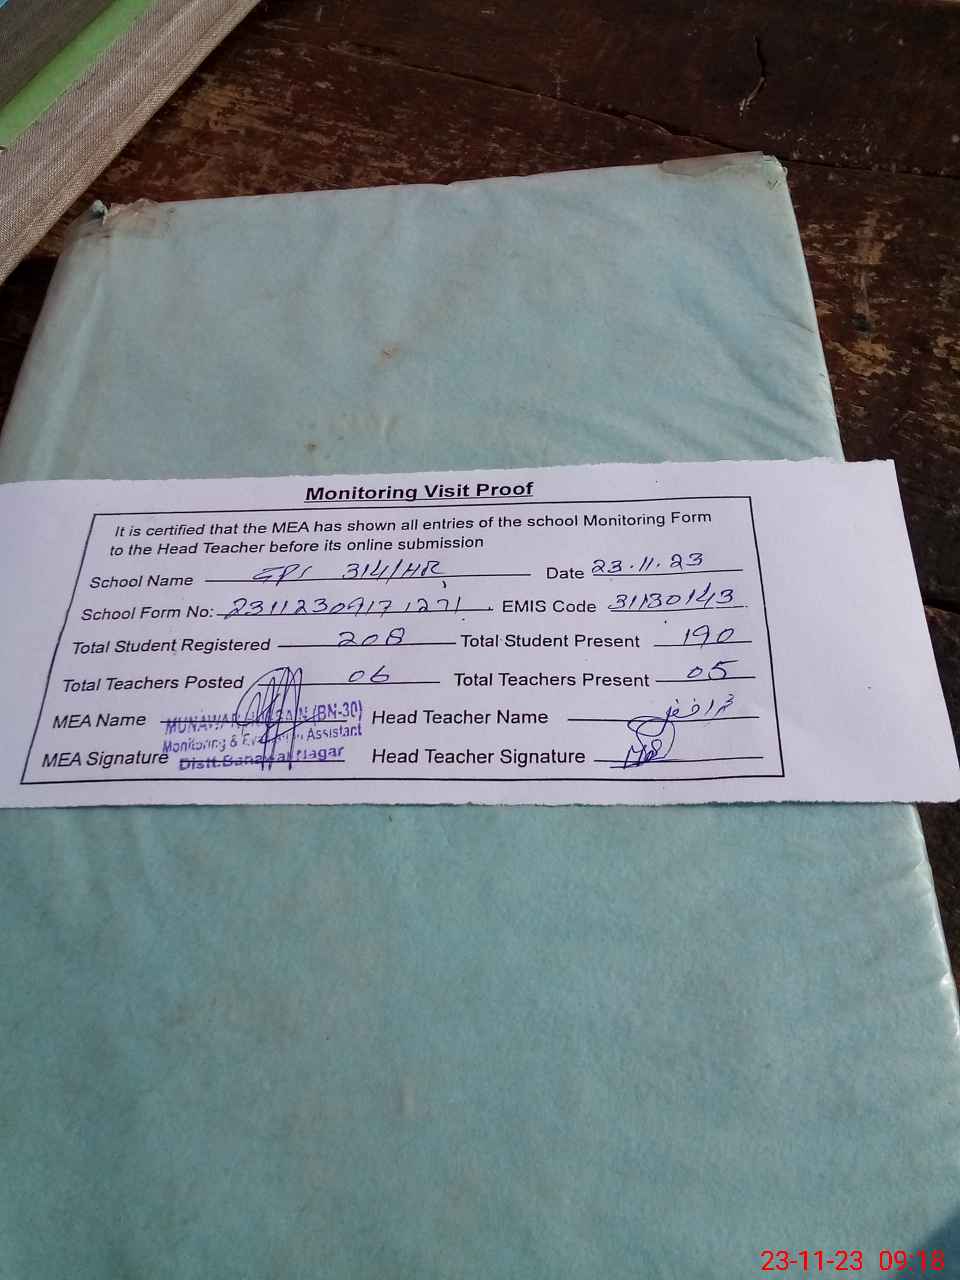 Monitoring Visit Proof
It is certified that the MEA has shown all entries of the school Monitoring Form
to the Head Teacher before its online submission
School Name GPS 314/HR Date 23.11.23
School Form No: 23112309171271 EMIS Code 31130143
Total Student Registered 208 Total Student Present 190
Total Teachers Posted 06 Total Teachers Present 05
MEA Name MUNAWAR HUSSAIN (BN-30) Head Teacher Name
Monitoring & Evaluation Assistant
MEA Signature Distt. Bahawal Nagar Head Teacher Signature
23-11-23 09:18